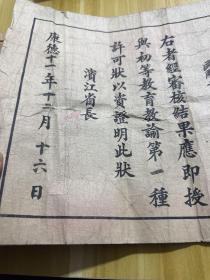 右者經審核結果應即授
與初等教育教諭第一種
許可狀以資證明此狀
濱江省長
康德十一年十二月十六日